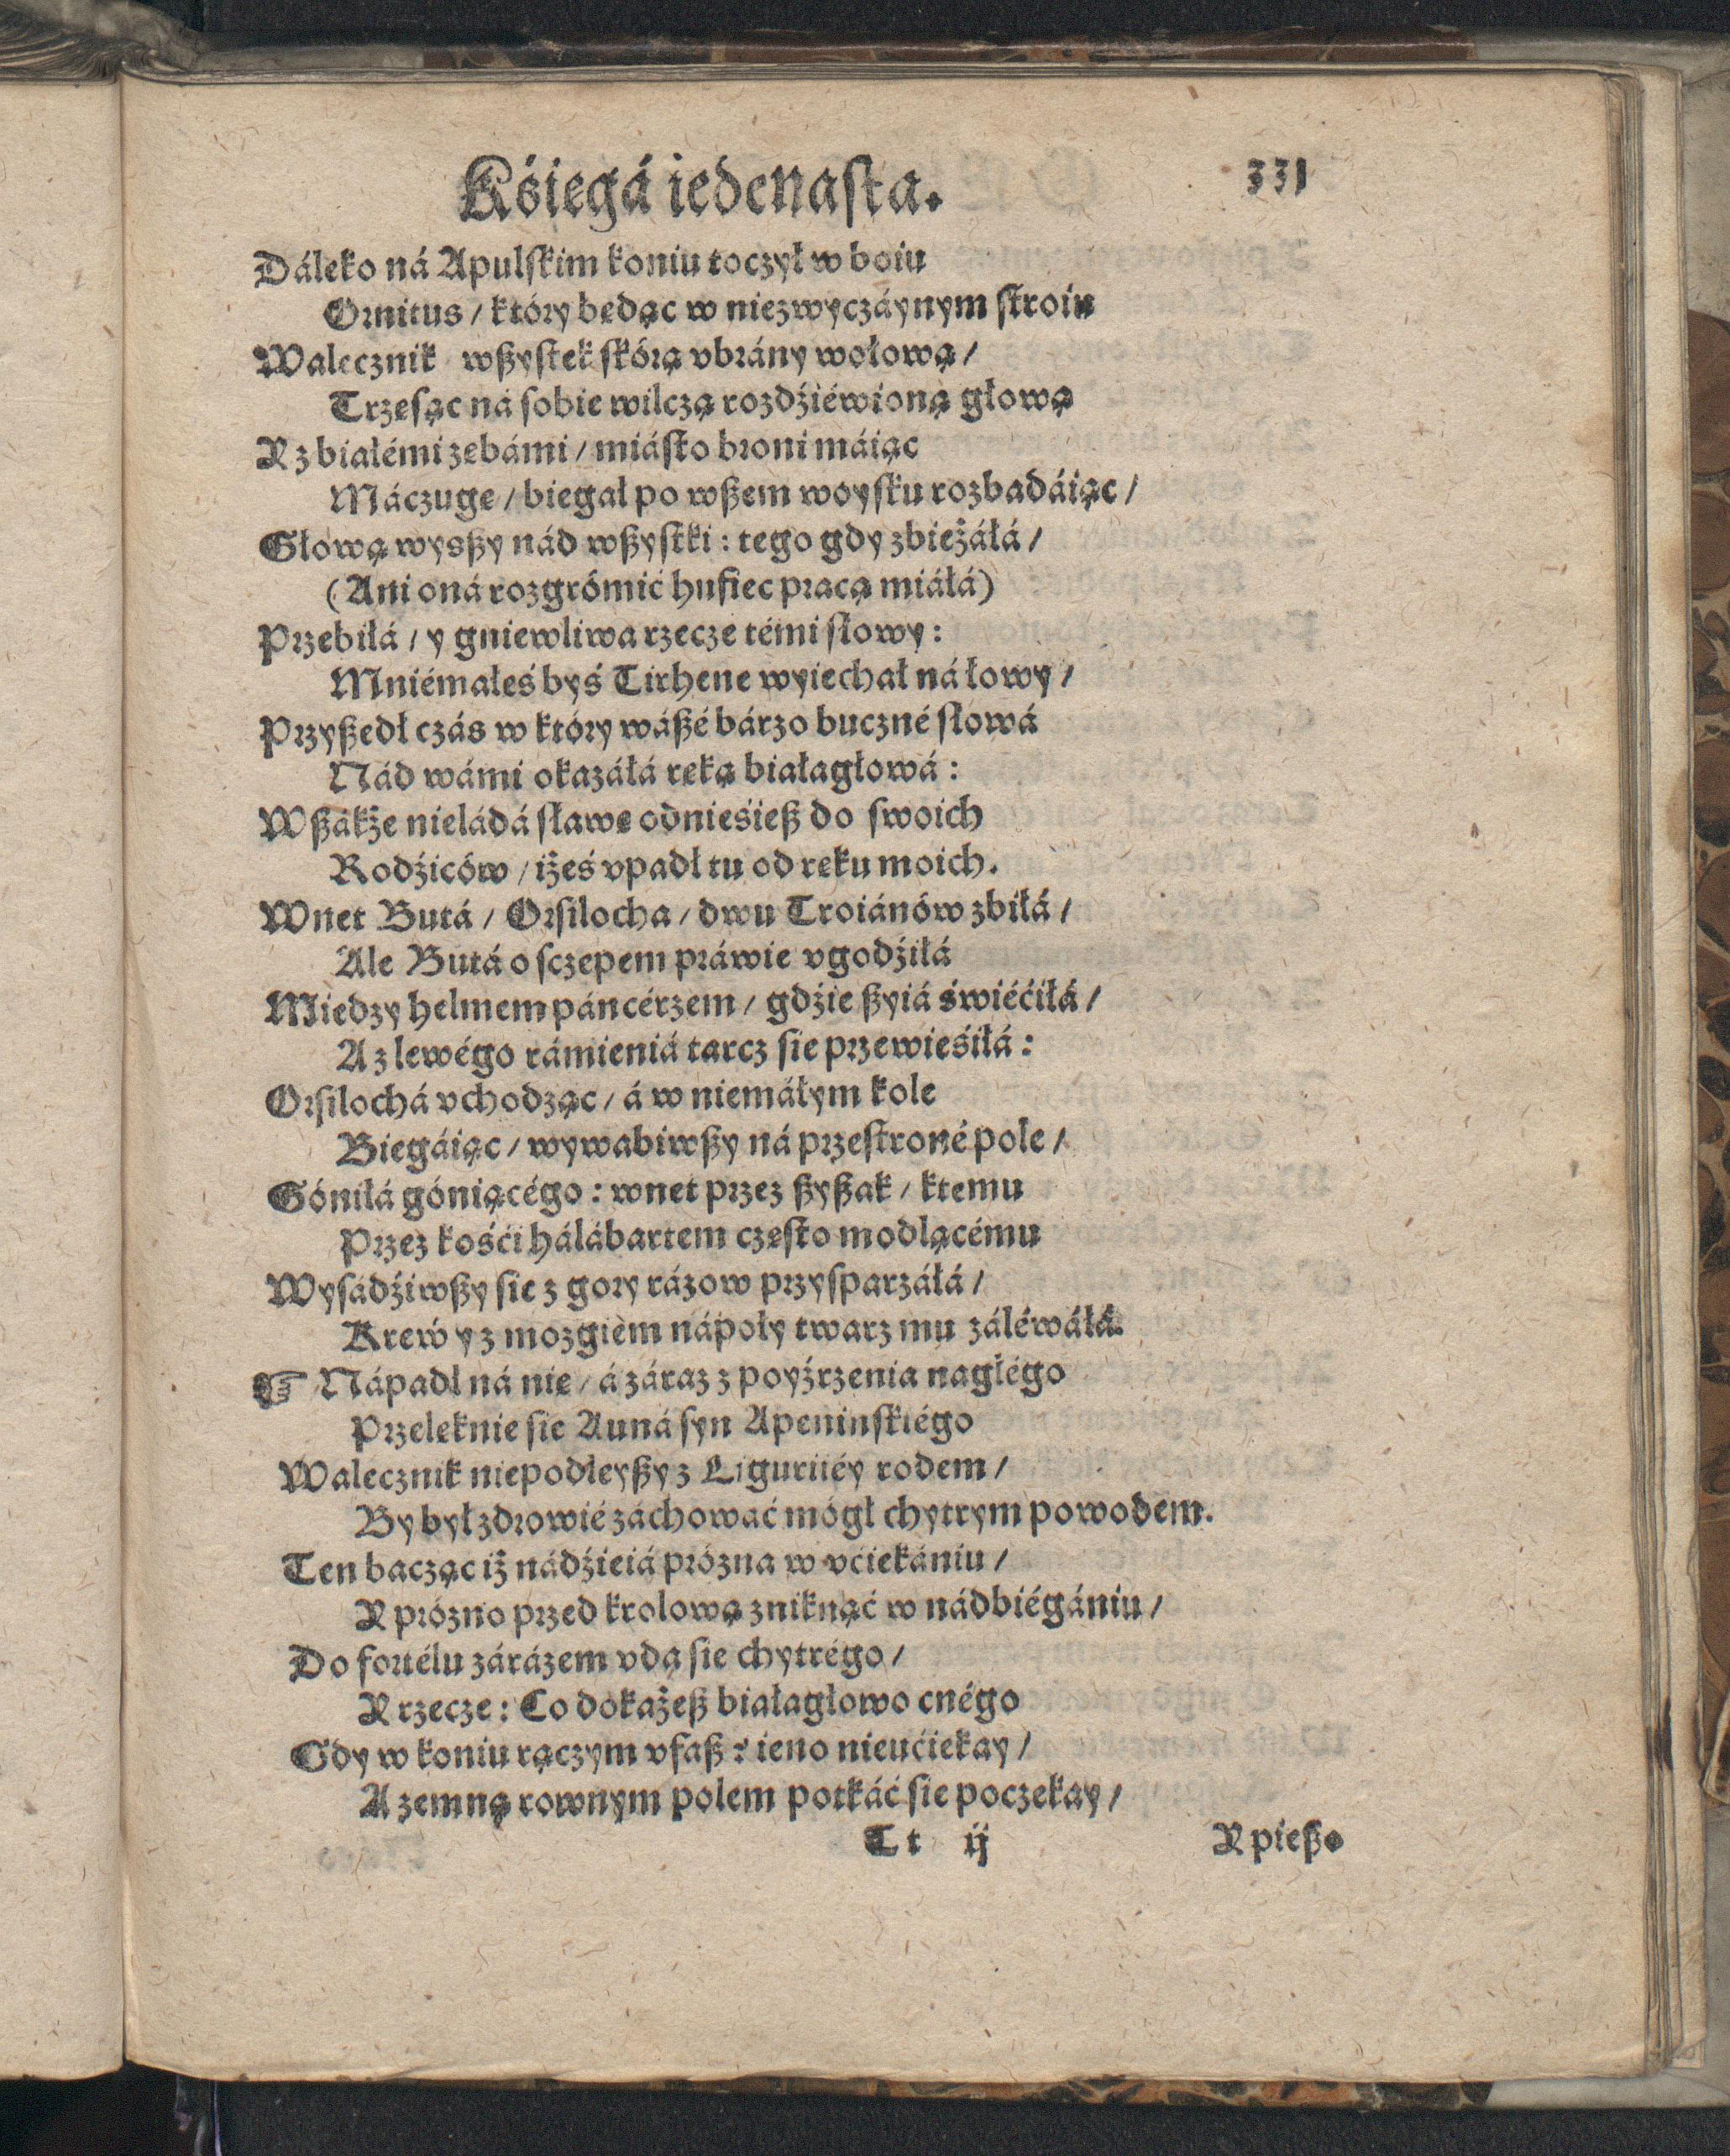 Kśięgá iedenasta. 331
Dáleko ná Apulskim koniu toczył w boiu
Ornitus / który będąc w niezwyczáynym stroiu
Walecznik wßystek skórą vbrány wołową /
Trzęsąc ná sobie wilczą rozdźiéwioną głową
Y z białémi zębámi / miásto broni máiąc
Máczugę / biegał po wßem woysku rozbadáiąc /
Głową wysßy nád wßystki : tego gdy zbieżáłá /
(Ani oná rozgrómić hufiec pracą miáłá)
Przebiłá / y gniewliwa rzecze témi słowy :
Mniémałeś byś Tirhene wyiechał ná łowy /
Przyßedł czás w który wáßé bárzo buczné słowá
Nád wámi okazáłá ręką białagłowá :
Wßákże nieládá sławę odniesieß do swoich
Rodźiców / iżeś vpadł tu od ręku moich.
Wnet Butá / Orsilocha / dwu Troiánów zbiłá /
Ale Butá osczepem práwie vgodźiłá
Między helmem páncérzem / gdźie ßyiá świéćiłá /
A z lewégo rámieniá tarcz sie przewieśiłá :
Orsilochá vchodząc / á w niemáłym kole
Biegáiąc / wywabiwßy ná przestroné pole /
Góniłá góniącégo : wnet przez ßyßak / ktemu
Przez kośći hálábartem często modlącému
Wysádźiwßy sie z gory rázow przysparzáłá /
Krew y z mozgiem nápoły twarz mu záléwáłá.
☞ Nápadł ná nię / á záraz z poyźrzenia nagłégo
Przelęknie sie Auná syn Apeninskiégo
Walecznik niepodleyßy z Liguriiéy rodem /
By był zdrowié záchować mógł chytrym powodem.
Ten bacząc iż nádźieiá prózna w vćiekániu /
Y prózno przed krolową zniknąć w nádbiégániu /
Do fortélu zárázem vdą sie chytrégo /
Y rzecze : Co dokażeß białagłowo cnégo
Gdy w koniu rączym vfaß ? ieno nieućiekay /
A zemną rownym polem potkáć sie poczekay /
Tt ij Y pießo